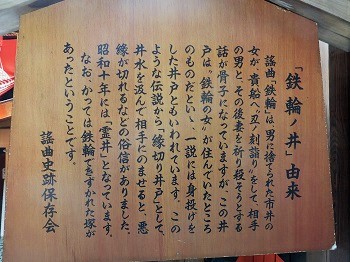 「鉄輪ノ井」由来
謡曲「鉄輪」は男に捨てられた市井の
女が、貴船へ〝丑ノ刻詣り〟をして、相手
の男と、その後妻を祈り殺そうとする
話が骨子になっていますが、この井
戸は〝鉄輪の女〟が住んでいたところ
のものだといい、一説には身投げを
した井戸ともいわれています。この
ような伝説から「縁切り井戸」として、
井水を汲んで相手にのませると、悪
縁が切れるなどの俗信がありました。
昭和十年には「霊井」となっています。
なお、かつては鉄輪できずかれた塚が
あったということです。
謡曲史跡保存会